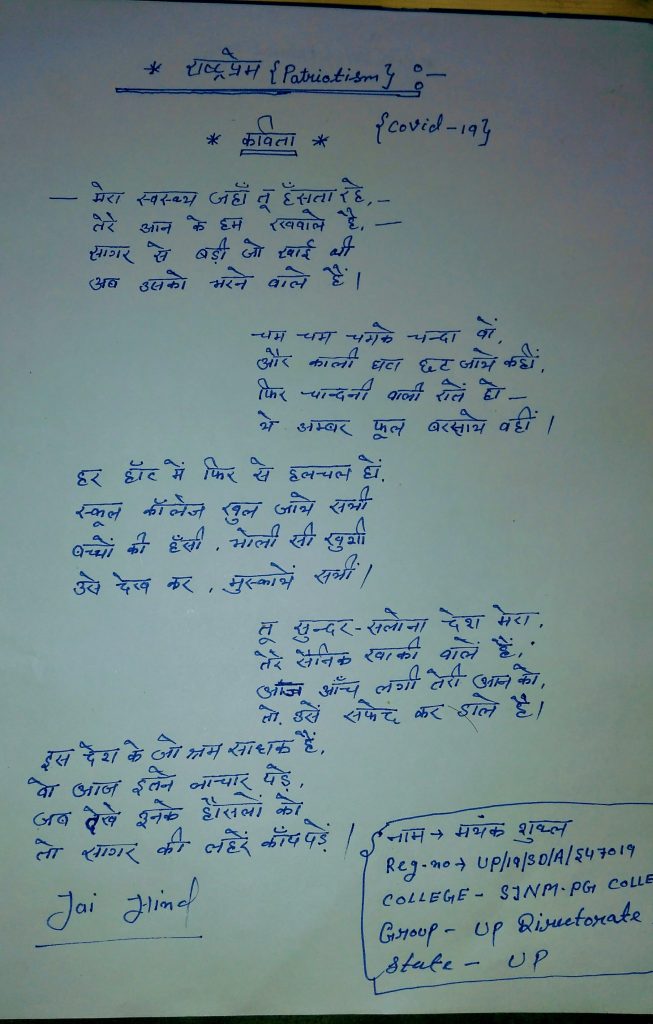 * राष्ट्रप्रेम {Patriotism} :-
* कविता * {Covid-19}
— मेरा स्वस्थ्य जहाँ तू हँसता रहे, –
तेरे आन के हम रखवाले है, —
सागर से बड़ी जो खाई थी
अब उसको भरने वाले हैं।
चम चम चमके चन्दा वों,
और काली घटा छट जाये कहीं,
फिर चान्दनी वाली रातें हो –
ये अम्बर फूल बरसाये वहीं।
हर हाँट में फिर से हलचल हों,
स्कूल कॉलेज खुल जाये सभी
बच्चों की हँसी, भोली सी खुशी
उसे देख कर, मुस्कायें सभी।
तू सुन्दर-सलोना देश मेरा,
तेरे सैनिक खाकी वालें हैं,
आज आँच लगी तेरी आन को,
तो, उसें सफेद कर डाले है।
इस देश के जो श्रम साधक हैं,
वो आज इतने लाचार पड़े,
जब देखे इनके हौसलों को
तो सागर की लहरें काँप पड़ें।
Jai Hind
नाम → मयंक शुक्ल
Reg.no → UP/19/SD/A/347019
COLLEGE - SJNM.PG COLLE
Group - UP Directorate
State - UP